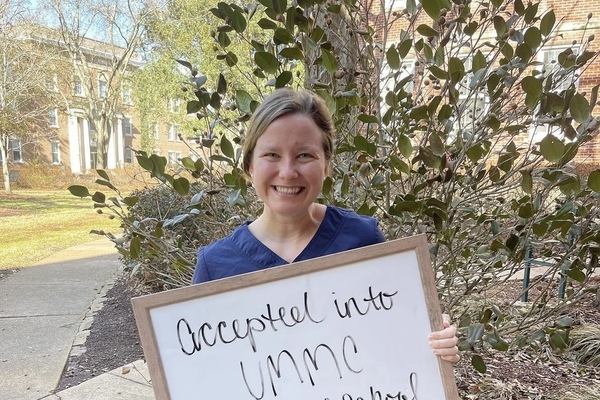 Accepted into
UMMC
School